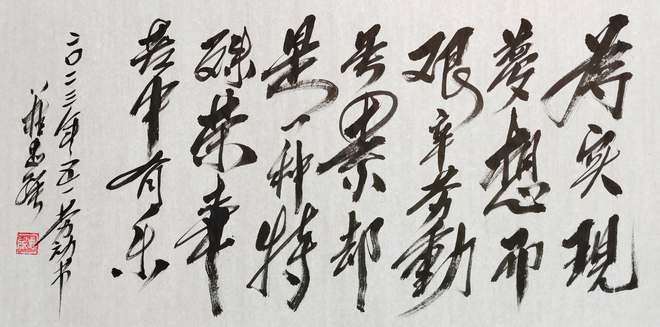 為实現
夢想而
艰辛劳動
虽累却
是一种特
殊荣幸
苦中有乐
二〇二三年五一劳动书